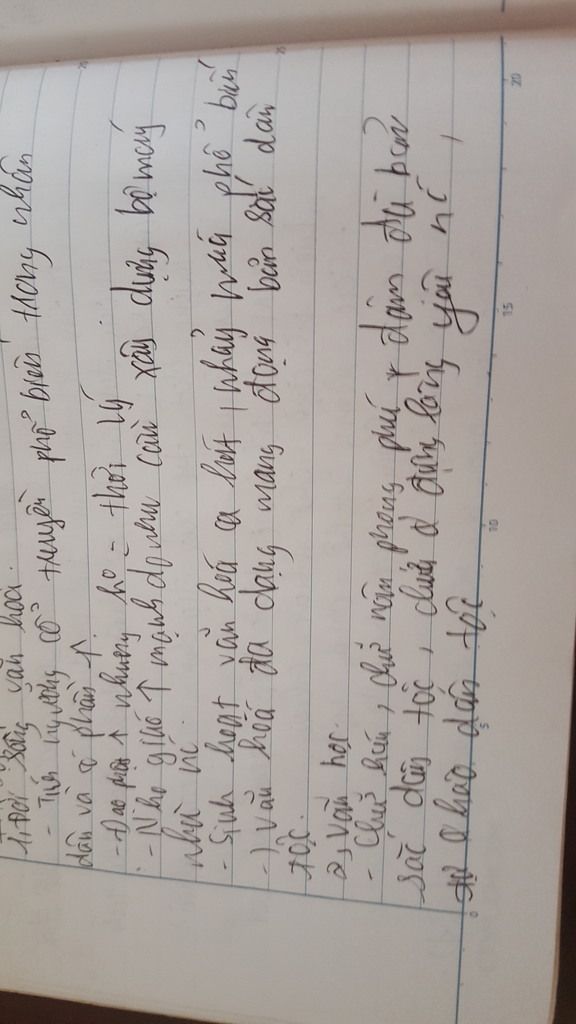 1, Đời sống văn hoá.
- Tín ngưỡng cổ truyền phổ biến trong nhân
dân và ↑.
- Đạo phật ↑ nhưng ko = thời Lý
- Nho giáo ↑ mạnh do nhu cầu xây dựng bộ máy
nhà nc
- Sinh hoạt văn hoá ca hát, nhảy múa phổ biến
-) Văn hoá đa dạng mang đậm bản sắc dân
tộc.
2, Văn học.
- Chữ hán, chữ nôm phong phú + đậm đà bản
sắc dân tộc, chứa đựng lòng yêu nc,
tự hào dân tộc
0 5 10 15 20
25 25